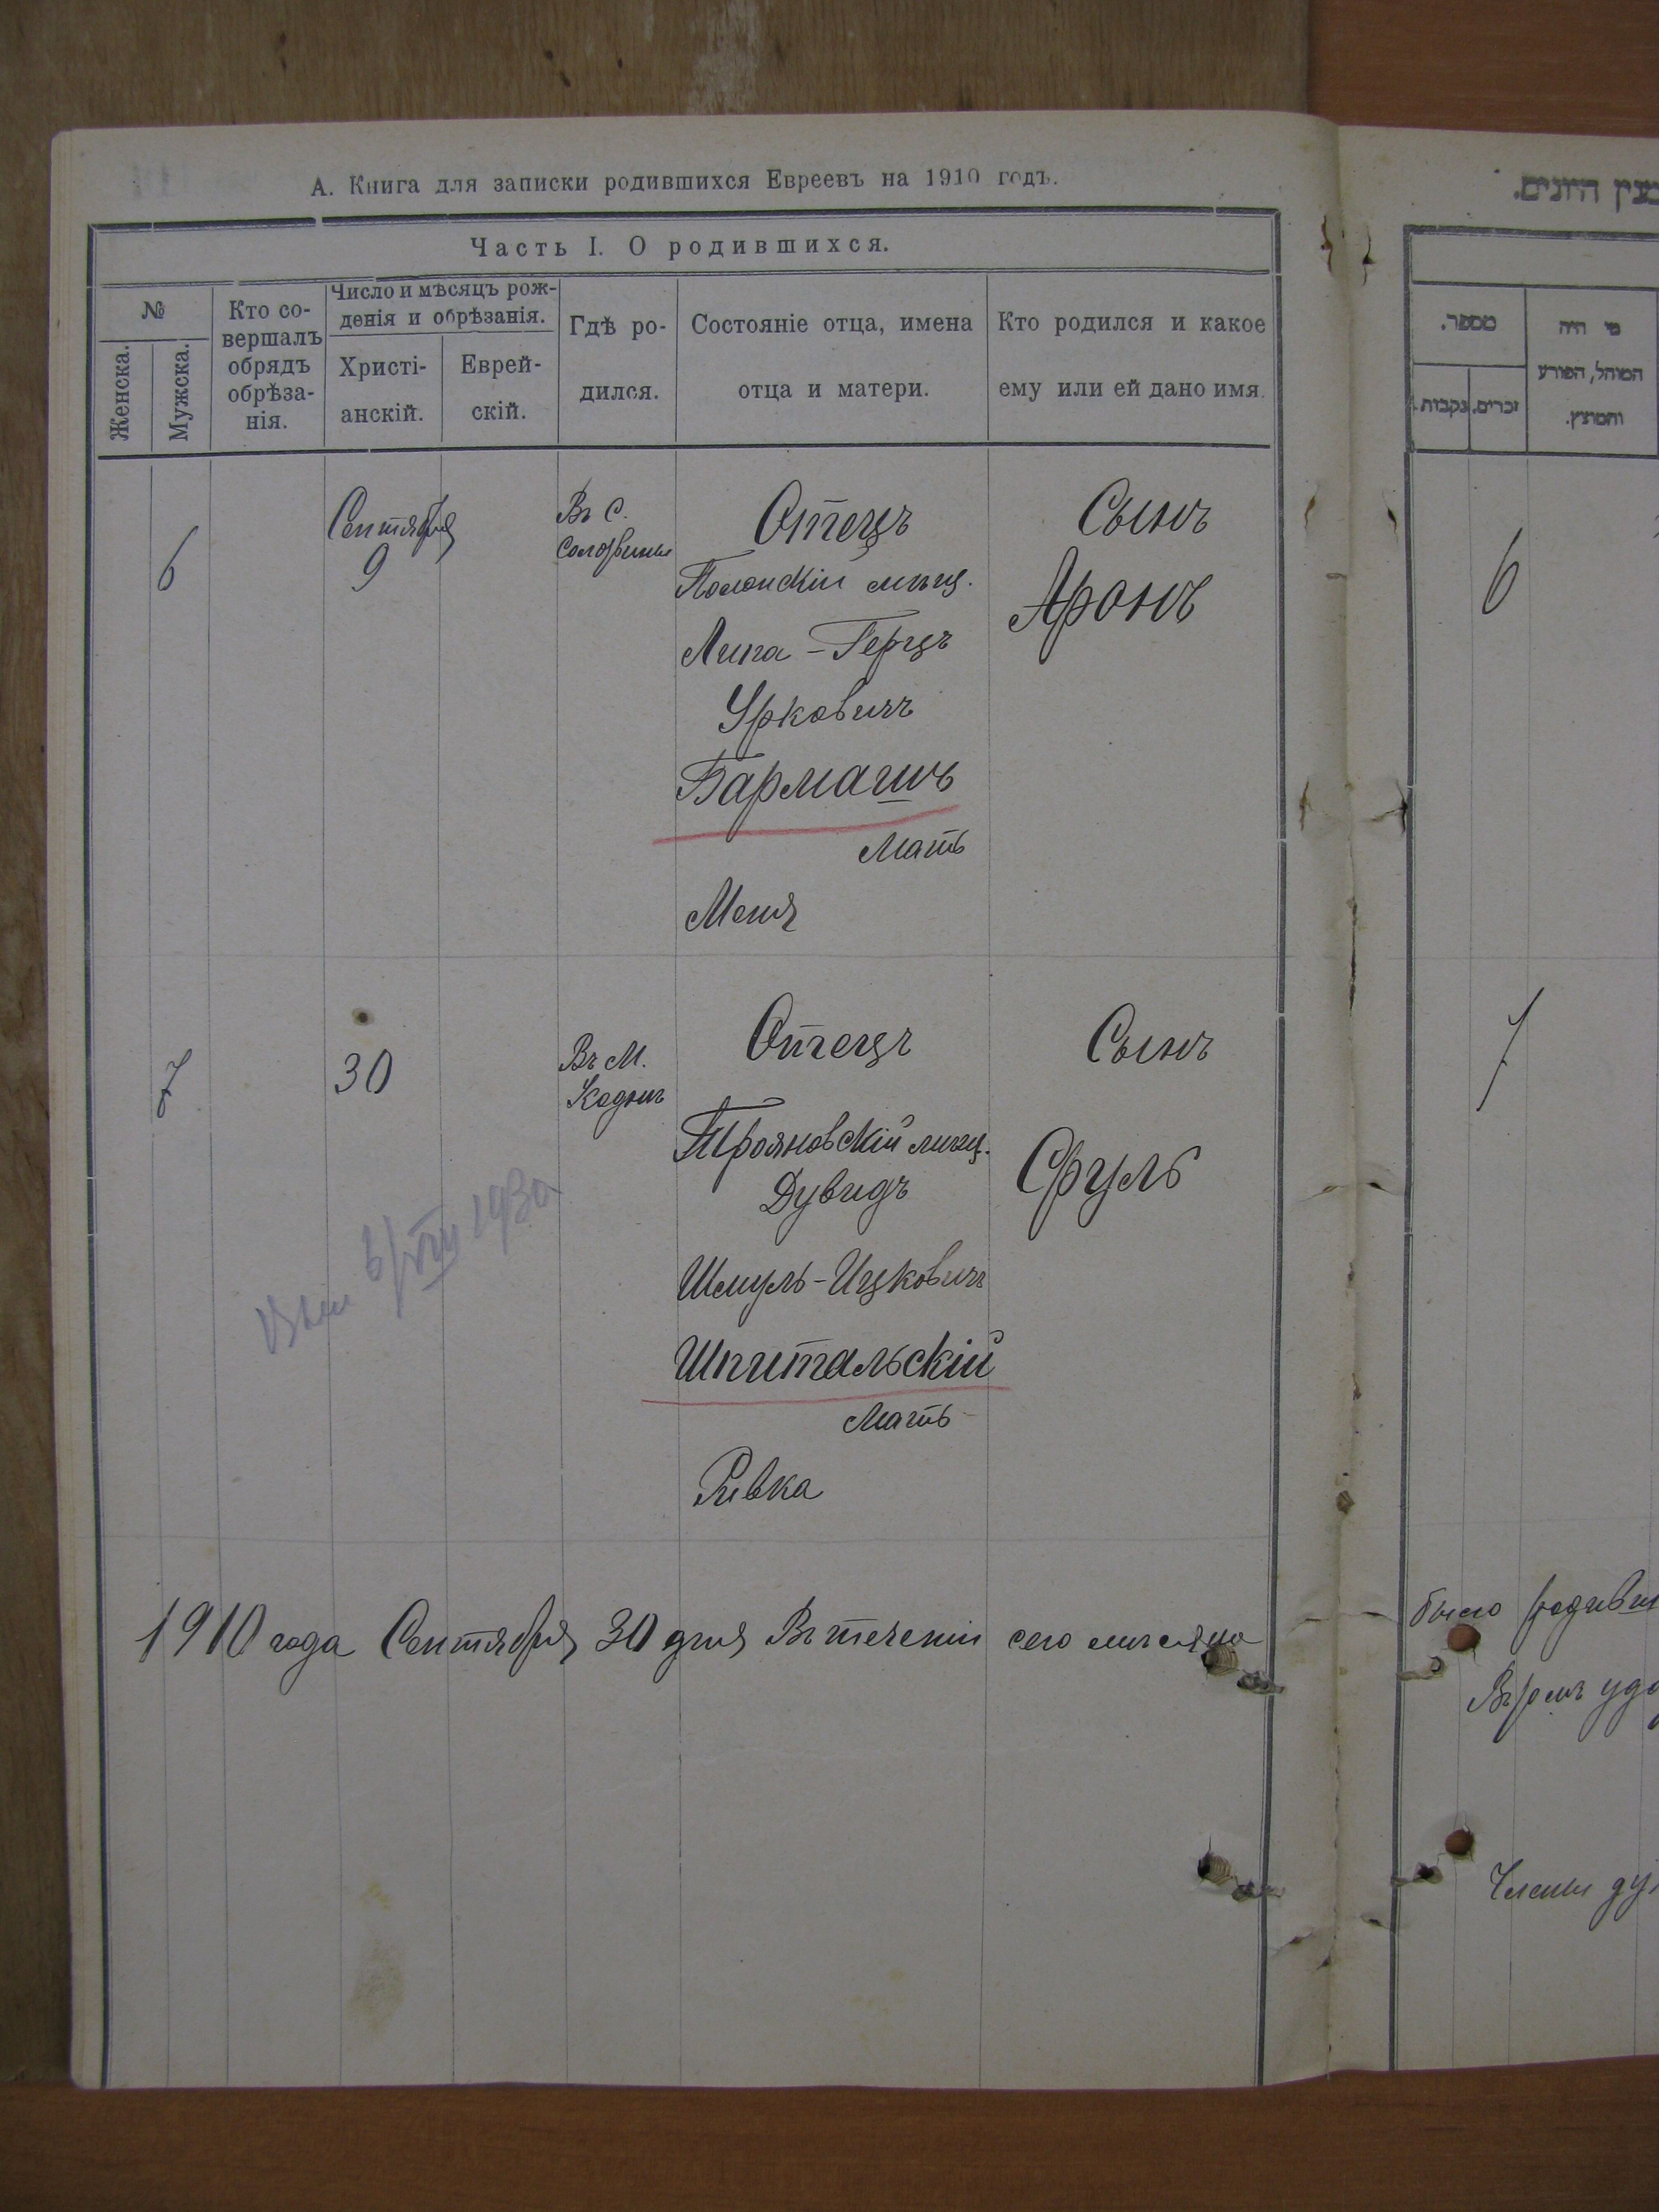 А. Книга для записки родившихся Евреевъ на 1910 годъ.
Часть I. О родившихся.
№
Женска.
Мужска.
Кто со-
вершалъ
обрядъ
обрѣза-
нія.
Число и мѣсяцъ рож-
денія и обрѣзанія.
Христі-
анскій.
Еврей-
скій.
Гдѣ ро-
дился.
Состояніе отца, имена
отца и матери.
Кто родился и какое
ему или ей дано имя.
6
Сентября
9
Въ С.
Отецъ
Полонскій мѣщ.
Липа-Герцъ
Урковичъ
Бармашъ
Мать
Меня
Сынъ
Аронъ
7
30
Въ М.
Кодня
Отецъ
Трояновскій мѣщ.
Дувидъ
Шмуль-Ицковичъ
Шпитальскій
Мать
Ривка
Сынъ
Сруль
6/VIII 1930
1910 года Сентября 30 дня Въ теченіи сего мѣсяца
מספר.
נקבות.
זכרים.
מי היה
המוהל, הפורע
והמוצץ.
6
7
было родивш
Члены ду